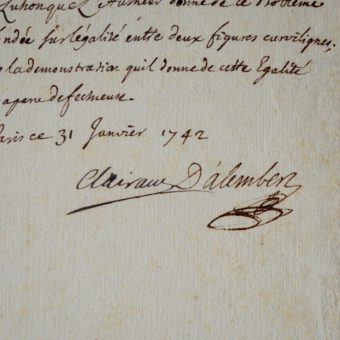 Lution que L'Autheur donne de ce Probleme
ndée sur l'égalité entre deux figures curvilignes,
la demonstration qu'il donne de cette Egalité
a paru defectueuse.
Paris ce 31 Janvier 1742
Clairaut D'alembert